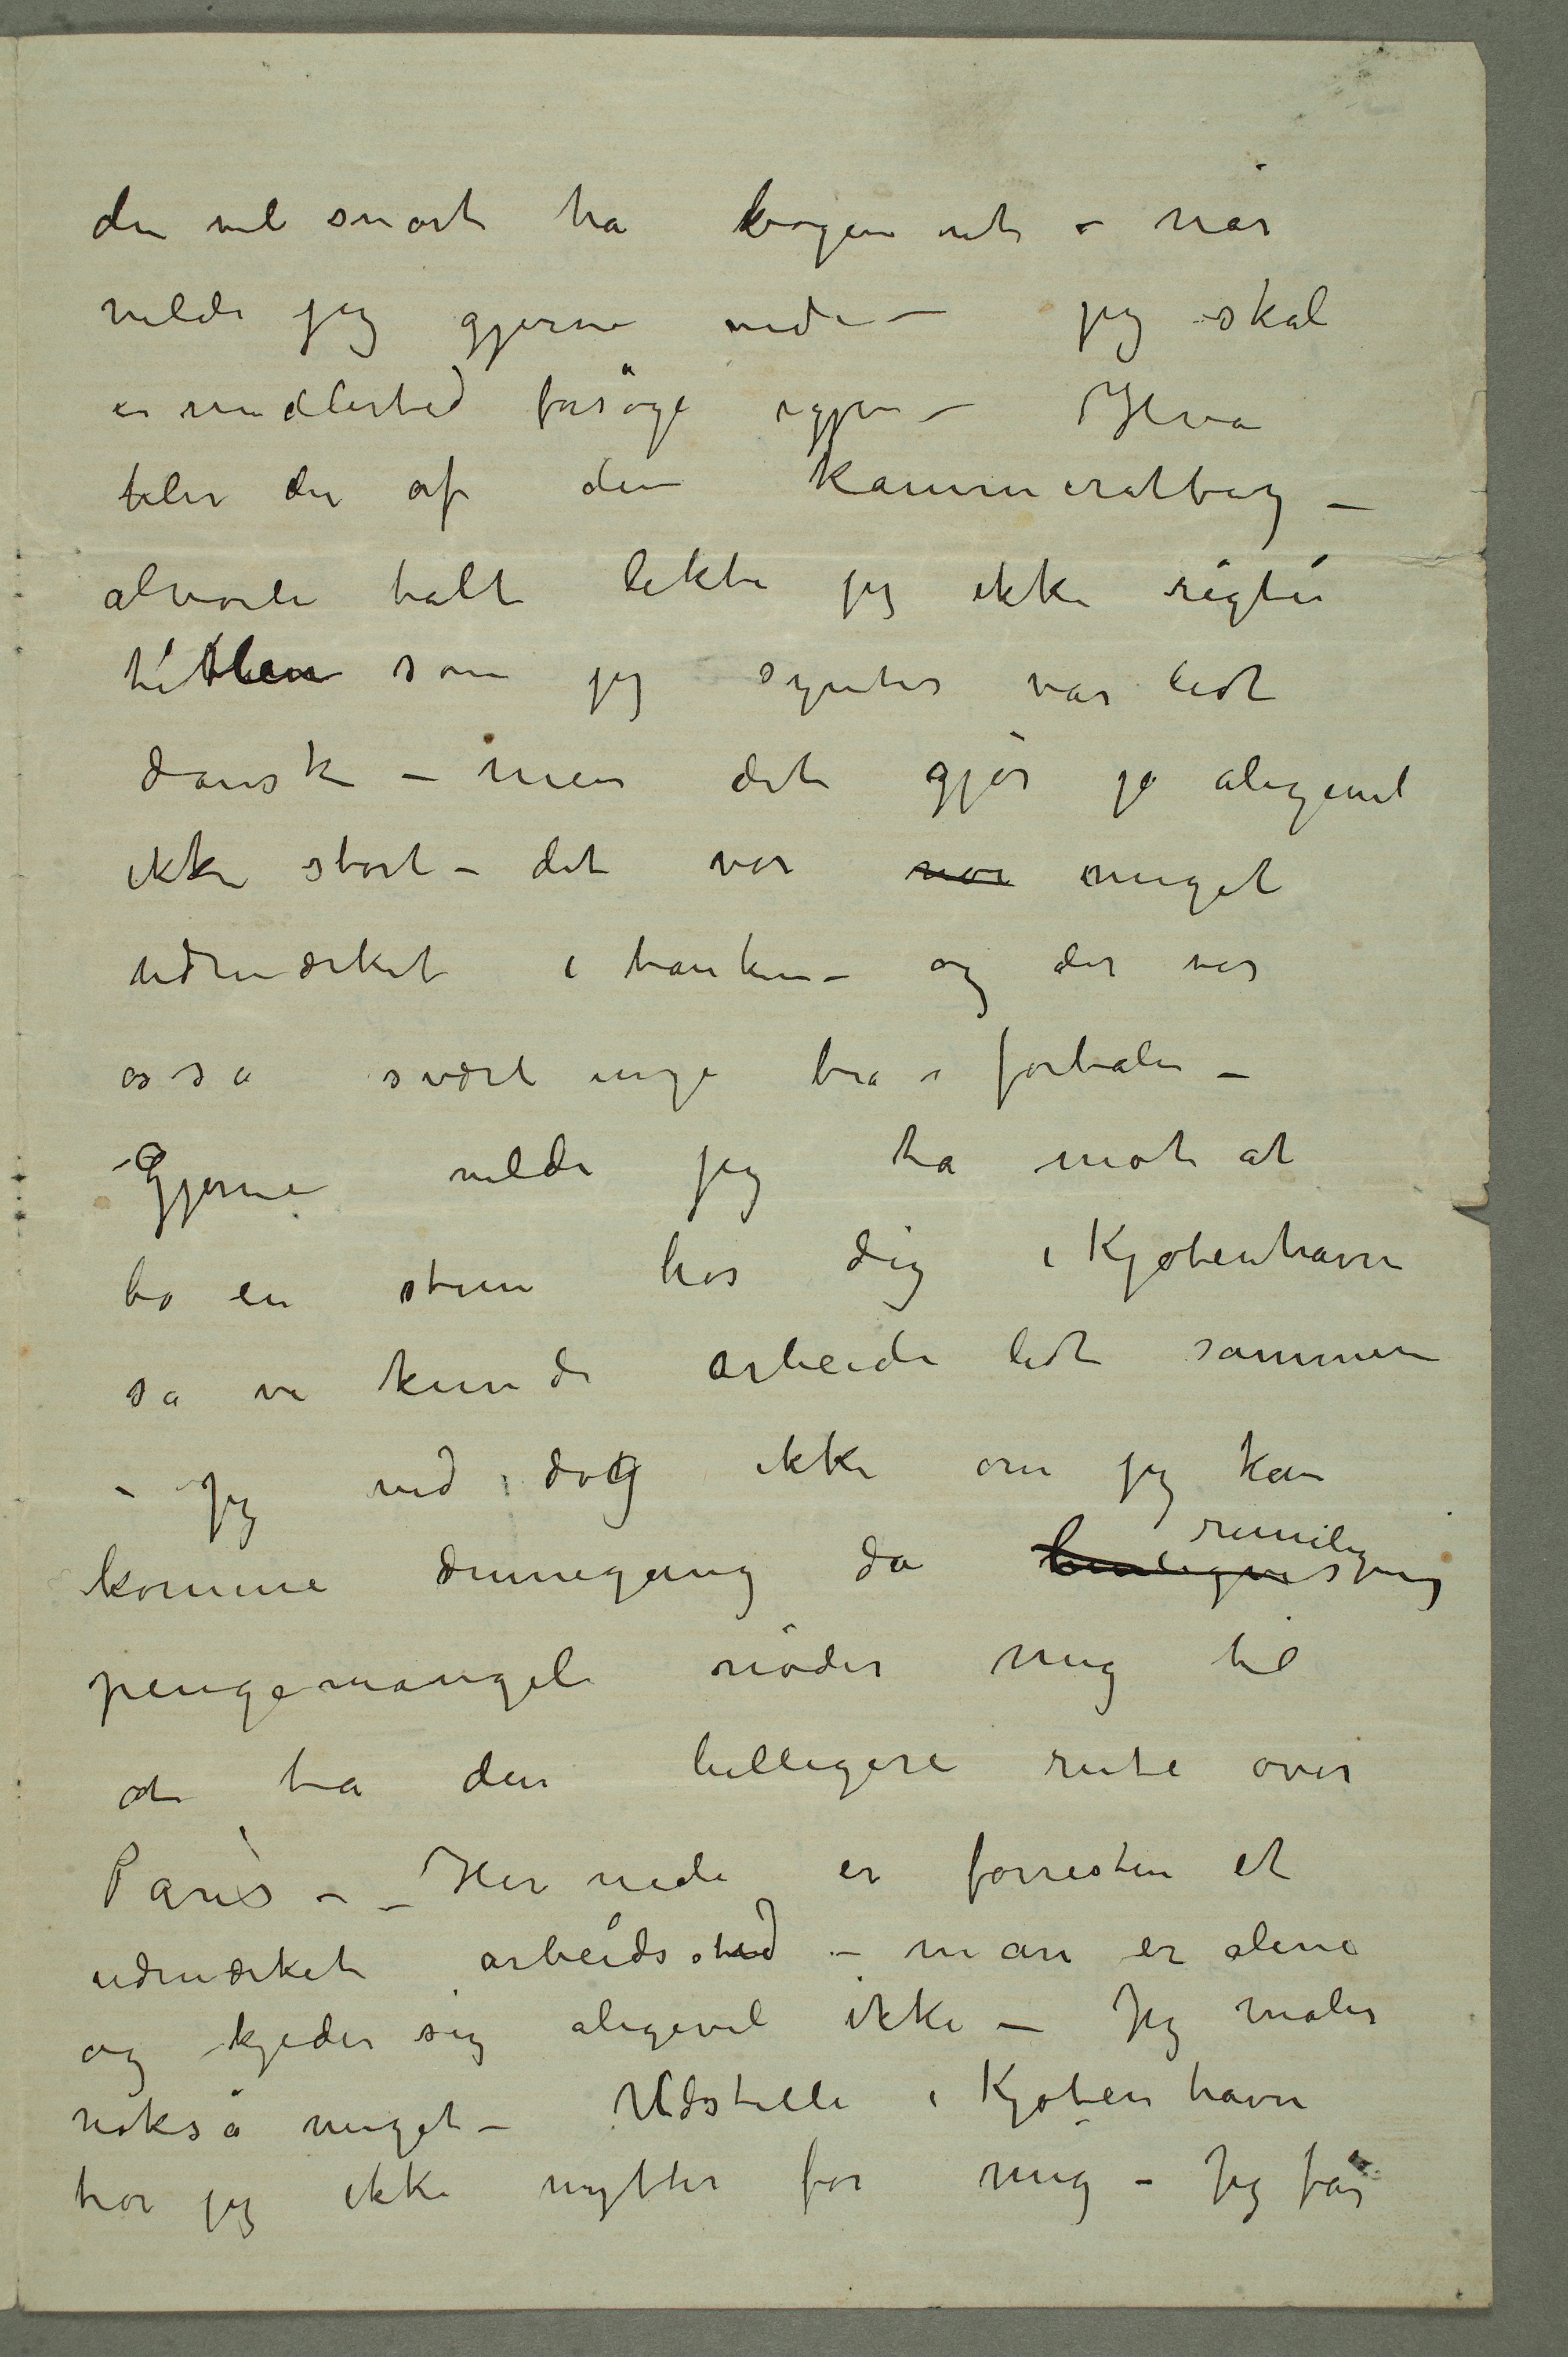 du vil snart ha bogen ut – når
vilde jeg gjerne vide – jeg skal
imidlertid forsöge igjen – Hva
blir der af den Kammeratbog –
alvorli talt likte jeg ikke rigti
titlen som jeg syntes var lidt
dansk – men det gjør jo aligevel
ikke stort – det var noe meget
udmærket i tanken – og der var
osså svært meget bra i fortalen –
Gjerne vilde jeg ta mot at
bo en stun hos dig i Kjøbenhavn
så vi kunde arbeide lidt sammen
– Jeg ved dog ikke om jeg kan
komme dennegang da rimelig
pengemangel nöder mig til
at ta den billigere rute over
Paris – – Her nede er forresten et
udmærket arbeidssted – man er alene
og kjeder sig aligevel ikke – Jeg maler
nokså meget – Udstille i Kjøbenhavn
tror jeg ikke nytter for mig – Jeg får